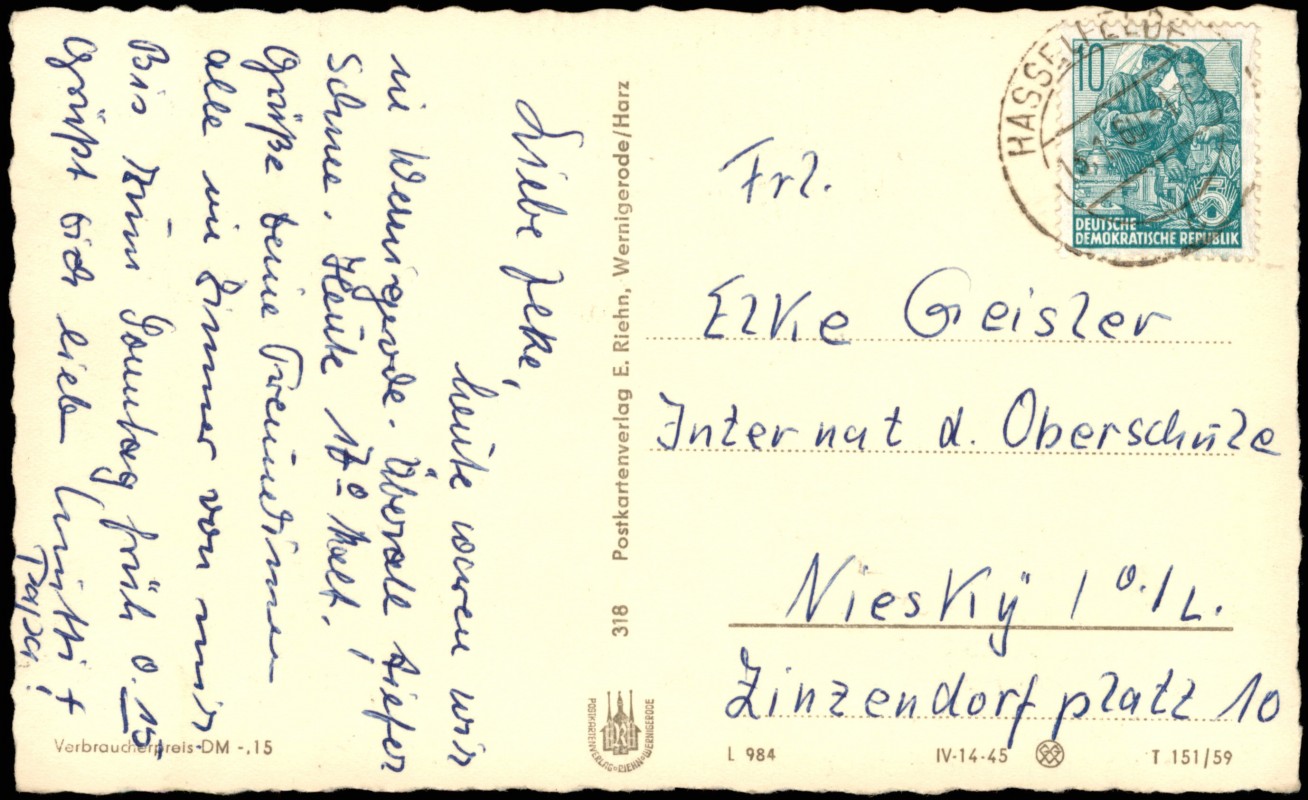 Liebe Elke,
heute waren wir
in Wernigerode. Überall tiefer
Schnee. Heute 17° kalt!
Grüße deine Freundinnen
alle im Zimmer von mir
Bis zum Sonntag früh 0.15
Grüßt dich lieb Mutti +
Papa!
Verbraucherpreis DM -,15
318 Postkartenverlag E. Riehn, Wernigerode/Harz
POSTKARTENVERLAG RIEHN WERNIGERODE
HASSELFELDE
10
5
DEUTSCHE
DEMOKRATISCHE REPUBLIK
Frl.
Elke Geisler
Internat d. Oberschule
Niesky / O./L.
Zinzendorfplatz 10
L 984 IV-14-45 T 151/59